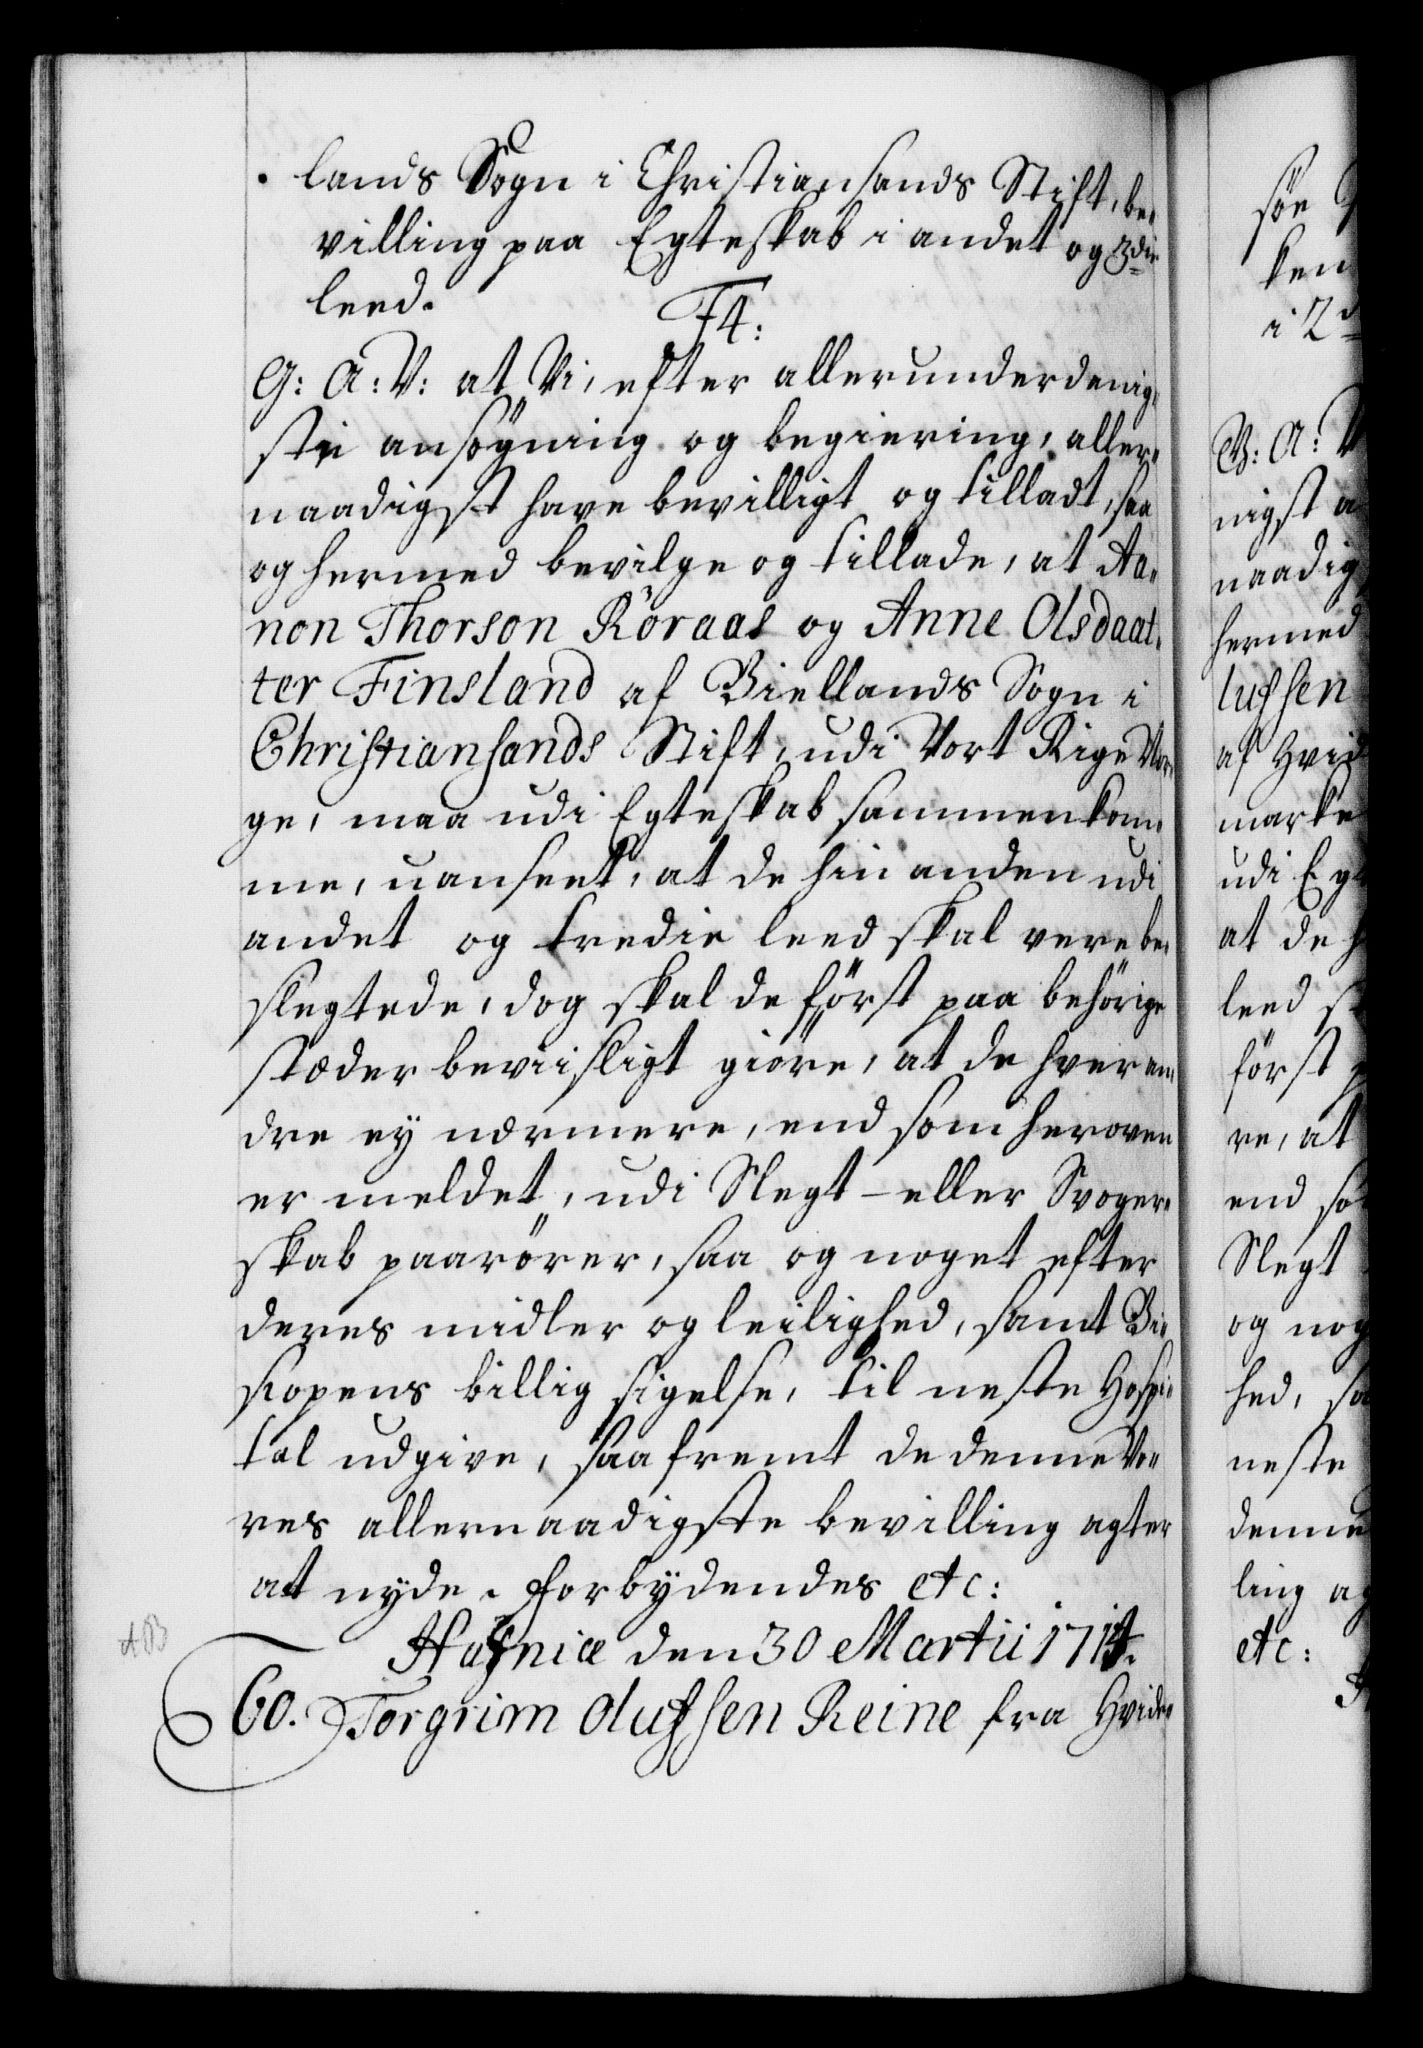 lands Sogn i Christiansands Stift, be-
villing paa Egteskab i andet og 3die
leed.
F4:
G: A: V: at Vi, efter allerunderdenig-
ste ansögning og begiering, aller-
naadigst have bevilligt og tilladt, saa
og hermed bevilge og tillade, at Aa-
non Thorson Röraas og Anne Olsdaat-
ter Finsland af Biellands Sogn i
Christiansands Stift, udi Vort Rige Nor-
ge, maa udi Egteskab sammenkom-
me, uanseet, at de hin anden udi
andet og tredie leed skal vere be-
slegtede, dog skal de först paa behörige
stæder beviisligt giöre, at de hveran-
dre ey nærmere, end som heroven
er meldet, udi Slegt- eller Svoger-
skab paarörer, saa og noget efter
deres midler og leilighed, samt Bi-
skopens billig sigelse, til neste Hospi-
tal udgive, saafremt de denne Vo-
res allernaadigste bevilling agter
at nyde. Forbydendes etc:
Hafniæ den 30 Martii 1714.
AB
60. Torgrim Olufsen Reine fra Hvide-
söe
ken
i 2d
V: A: V
nigst a
naadig
hermed
lufsen
af Hvid
marke
udi Egt
at de h
leed s
först p
re, at
end so
Slegt
og nog
hed, sa
neste
denne
ling ag
etc: